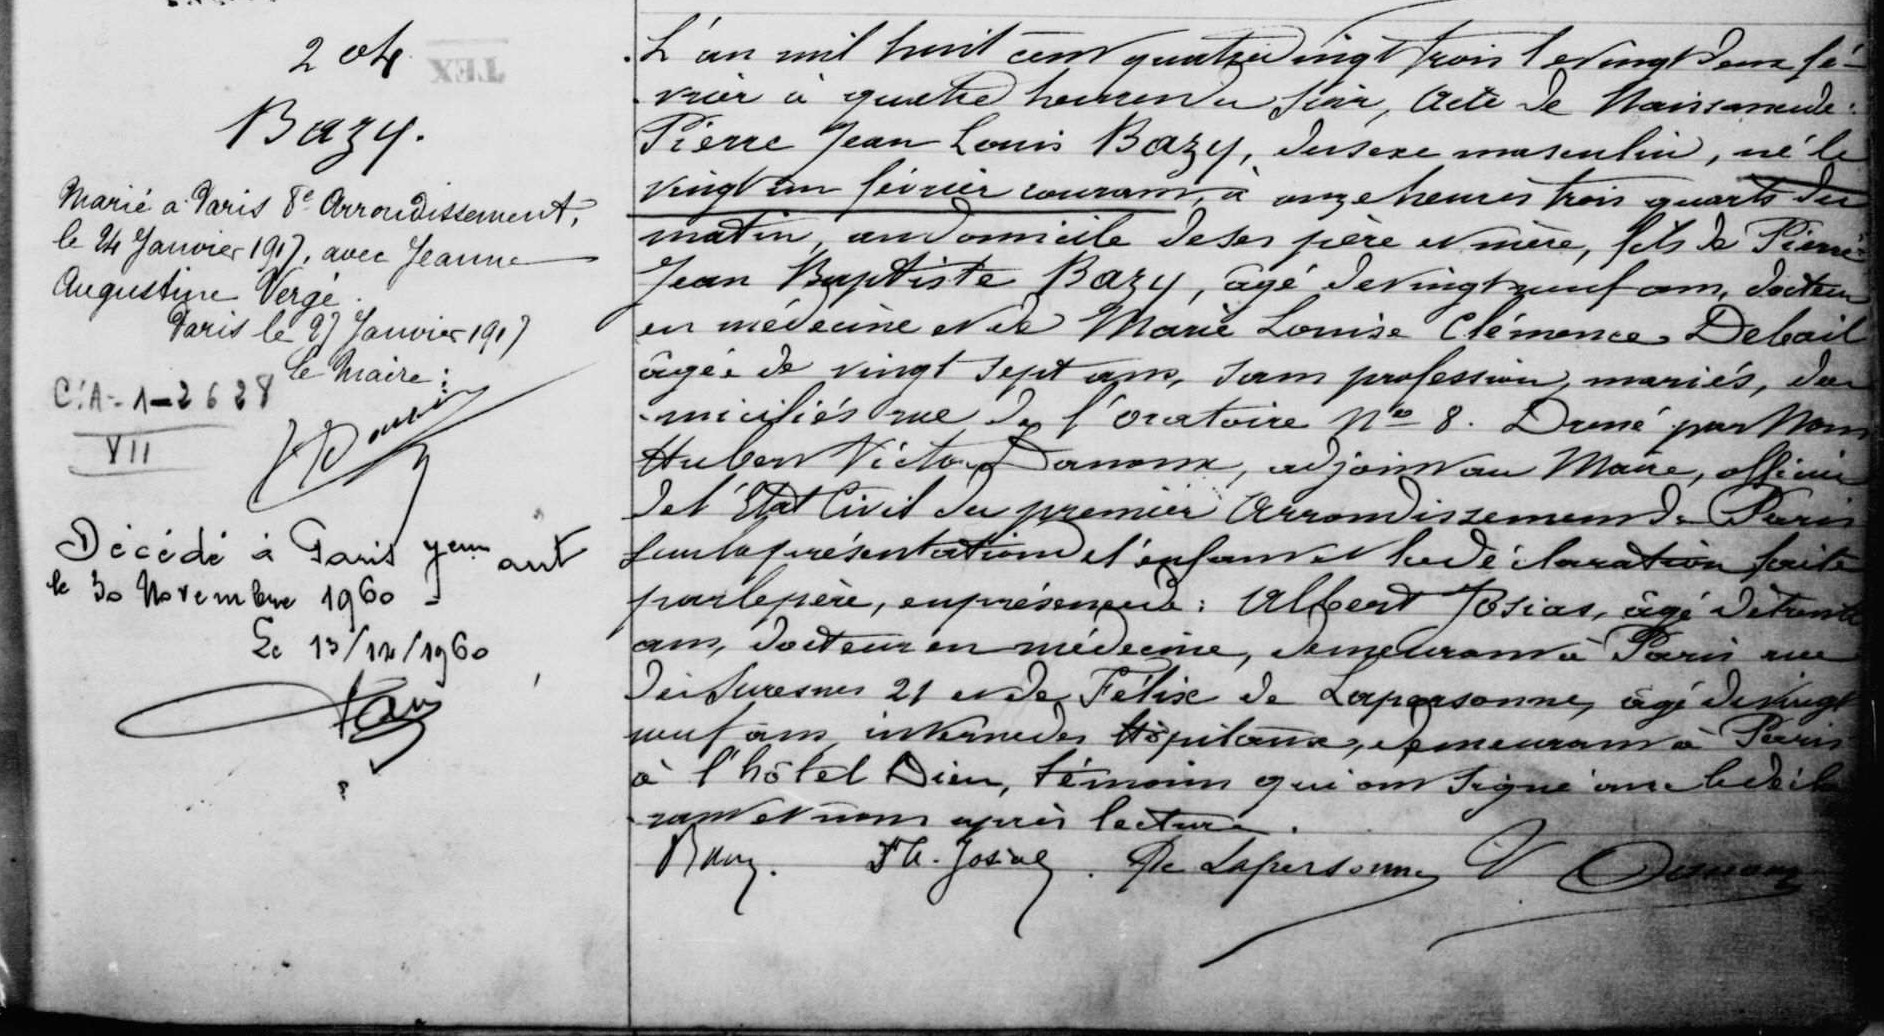 204
Bazy.
Marié à Paris 8e Arrondissement,
le 24 Janvier 1917, avec Jeanne
Augustine Vergé.
Paris le 27 Janvier 1917
Le Maire :
C.A - 1 - 2628
VII
Décédé à Paris
le 30 Novembre 1960 -
Le 13/12/1960
L'an mil huit cent quatre vingt trois le vingt deux fé-
-vrier à quatre heures du soir, Acte de Naissance de :
Pierre Jean Louis Bazy, du sexe masculin, né le
vingt un février courant, à onze heures trois quarts du
matin, au domicile de ses père et mère, fils de Pierre
Jean Baptiste Bazy, âgé de vingt neuf ans, docteur
en médecine et de Marie Louise Clémence Debail
âgée de vingt sept ans, sans profession, mariés, do
-miciliés rue de l'oratoire No 8. Dressé par Nous
Hubert Victor Damoux, adjoint au Maire, officier
de l'Etat Civil du premier Arrondissement de Paris
sur la présentation de l'enfant et la déclaration faite
par le père, en présence de : Albert Josias, âgé de trente
ans, docteur en médecine, demeurant à Paris rue
de Suresnes 21 et de Félix de Lapersonne, âgé de vingt
neuf ans, interne des Hôpitaux, demeurant à Paris
à l'hôtel Dieu, témoins qui ont signé avec le décla
-rant et nous après lecture.
Bazy. Ab. Josias. De Lapersonne V Damoux